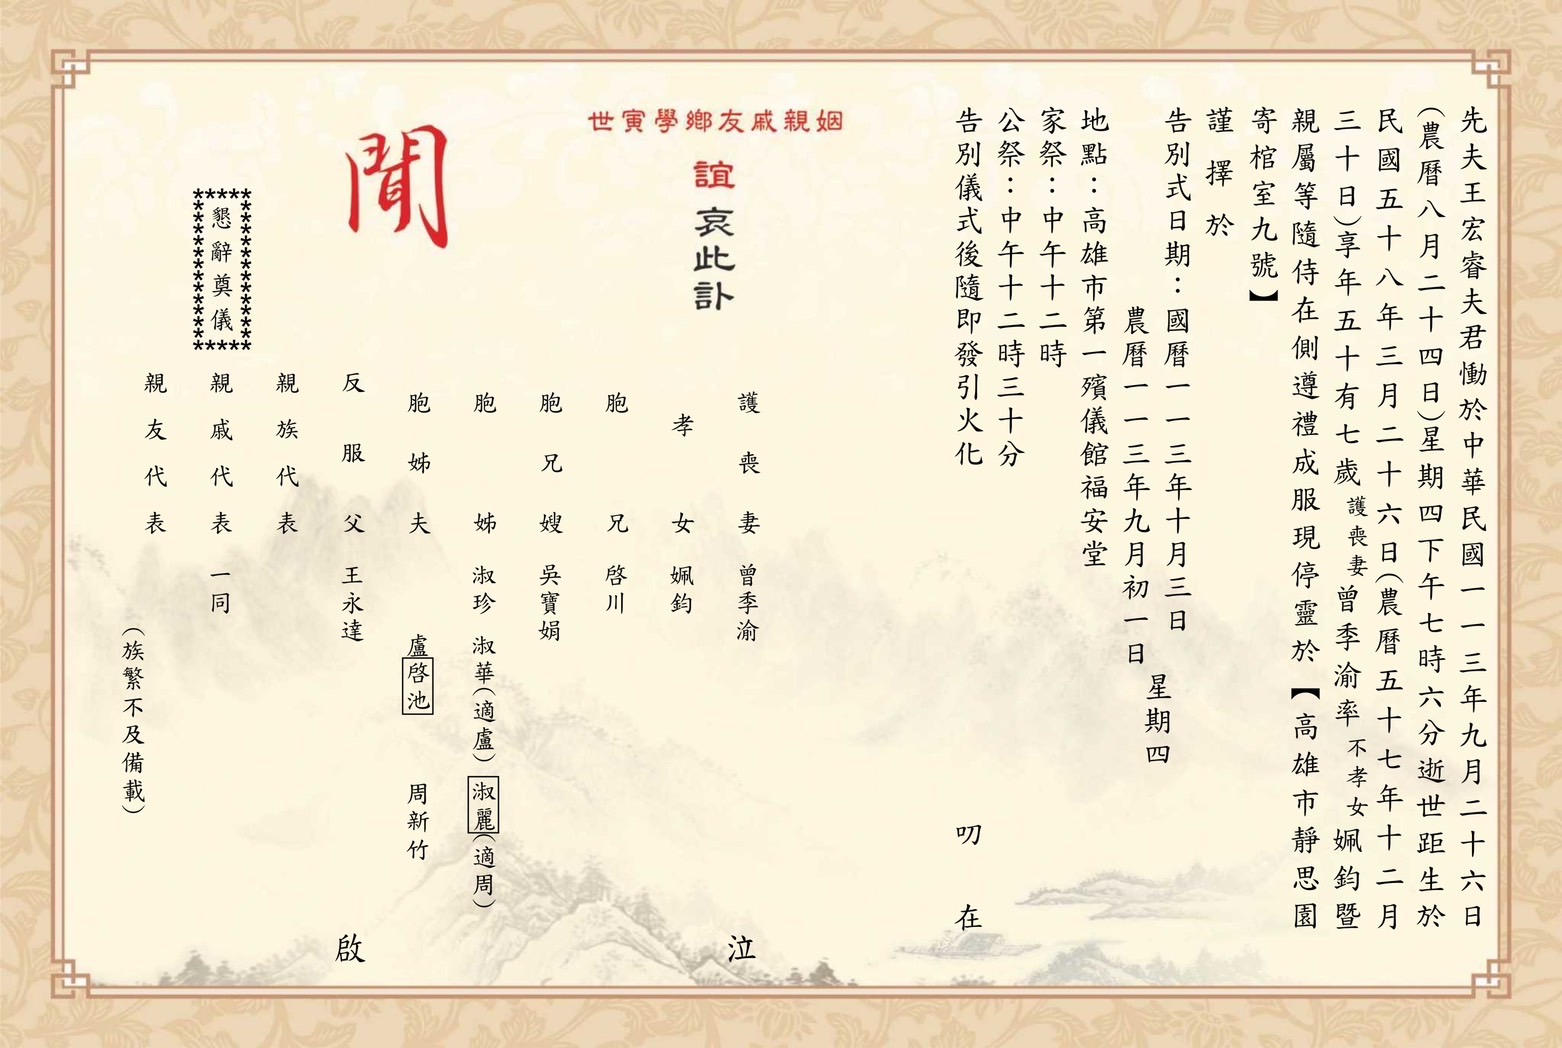 先夫王宏睿夫君慟於中華民國一一三年九月二十六日
(農曆八月二十四日)星期四下午七時六分逝世距生於
民國五十八年三月二十六日(農曆五十七年十二月
三十日)享年五十有七歲護喪妻曾季渝率不孝女姵鈞暨
親屬等隨侍在側遵禮成服現停靈於【高雄市靜思園
寄棺室九號】
謹擇於
告別式日期：國曆一一三年十月三日
農曆一一三年九月初一日
星期四
地點：高雄市第一殯儀館福安堂
家祭：中午十二時
公祭：中午十二時三十分
告別儀式後隨即發引火化
叨在
姻親戚友鄉學寅世
誼
哀此訃
聞
護喪妻 曾季渝
孝女 姵鈞
胞兄 啓川
胞兄嫂 吳寶娟
胞姊 淑珍 淑華(適盧) 淑麗(適周)
胞姊夫 盧啓池 周新竹
反服父 王永達
親族代表
親戚代表 一同
親友代表
(族繁不及備載)
泣
啟
*****
懇辭奠儀
*****